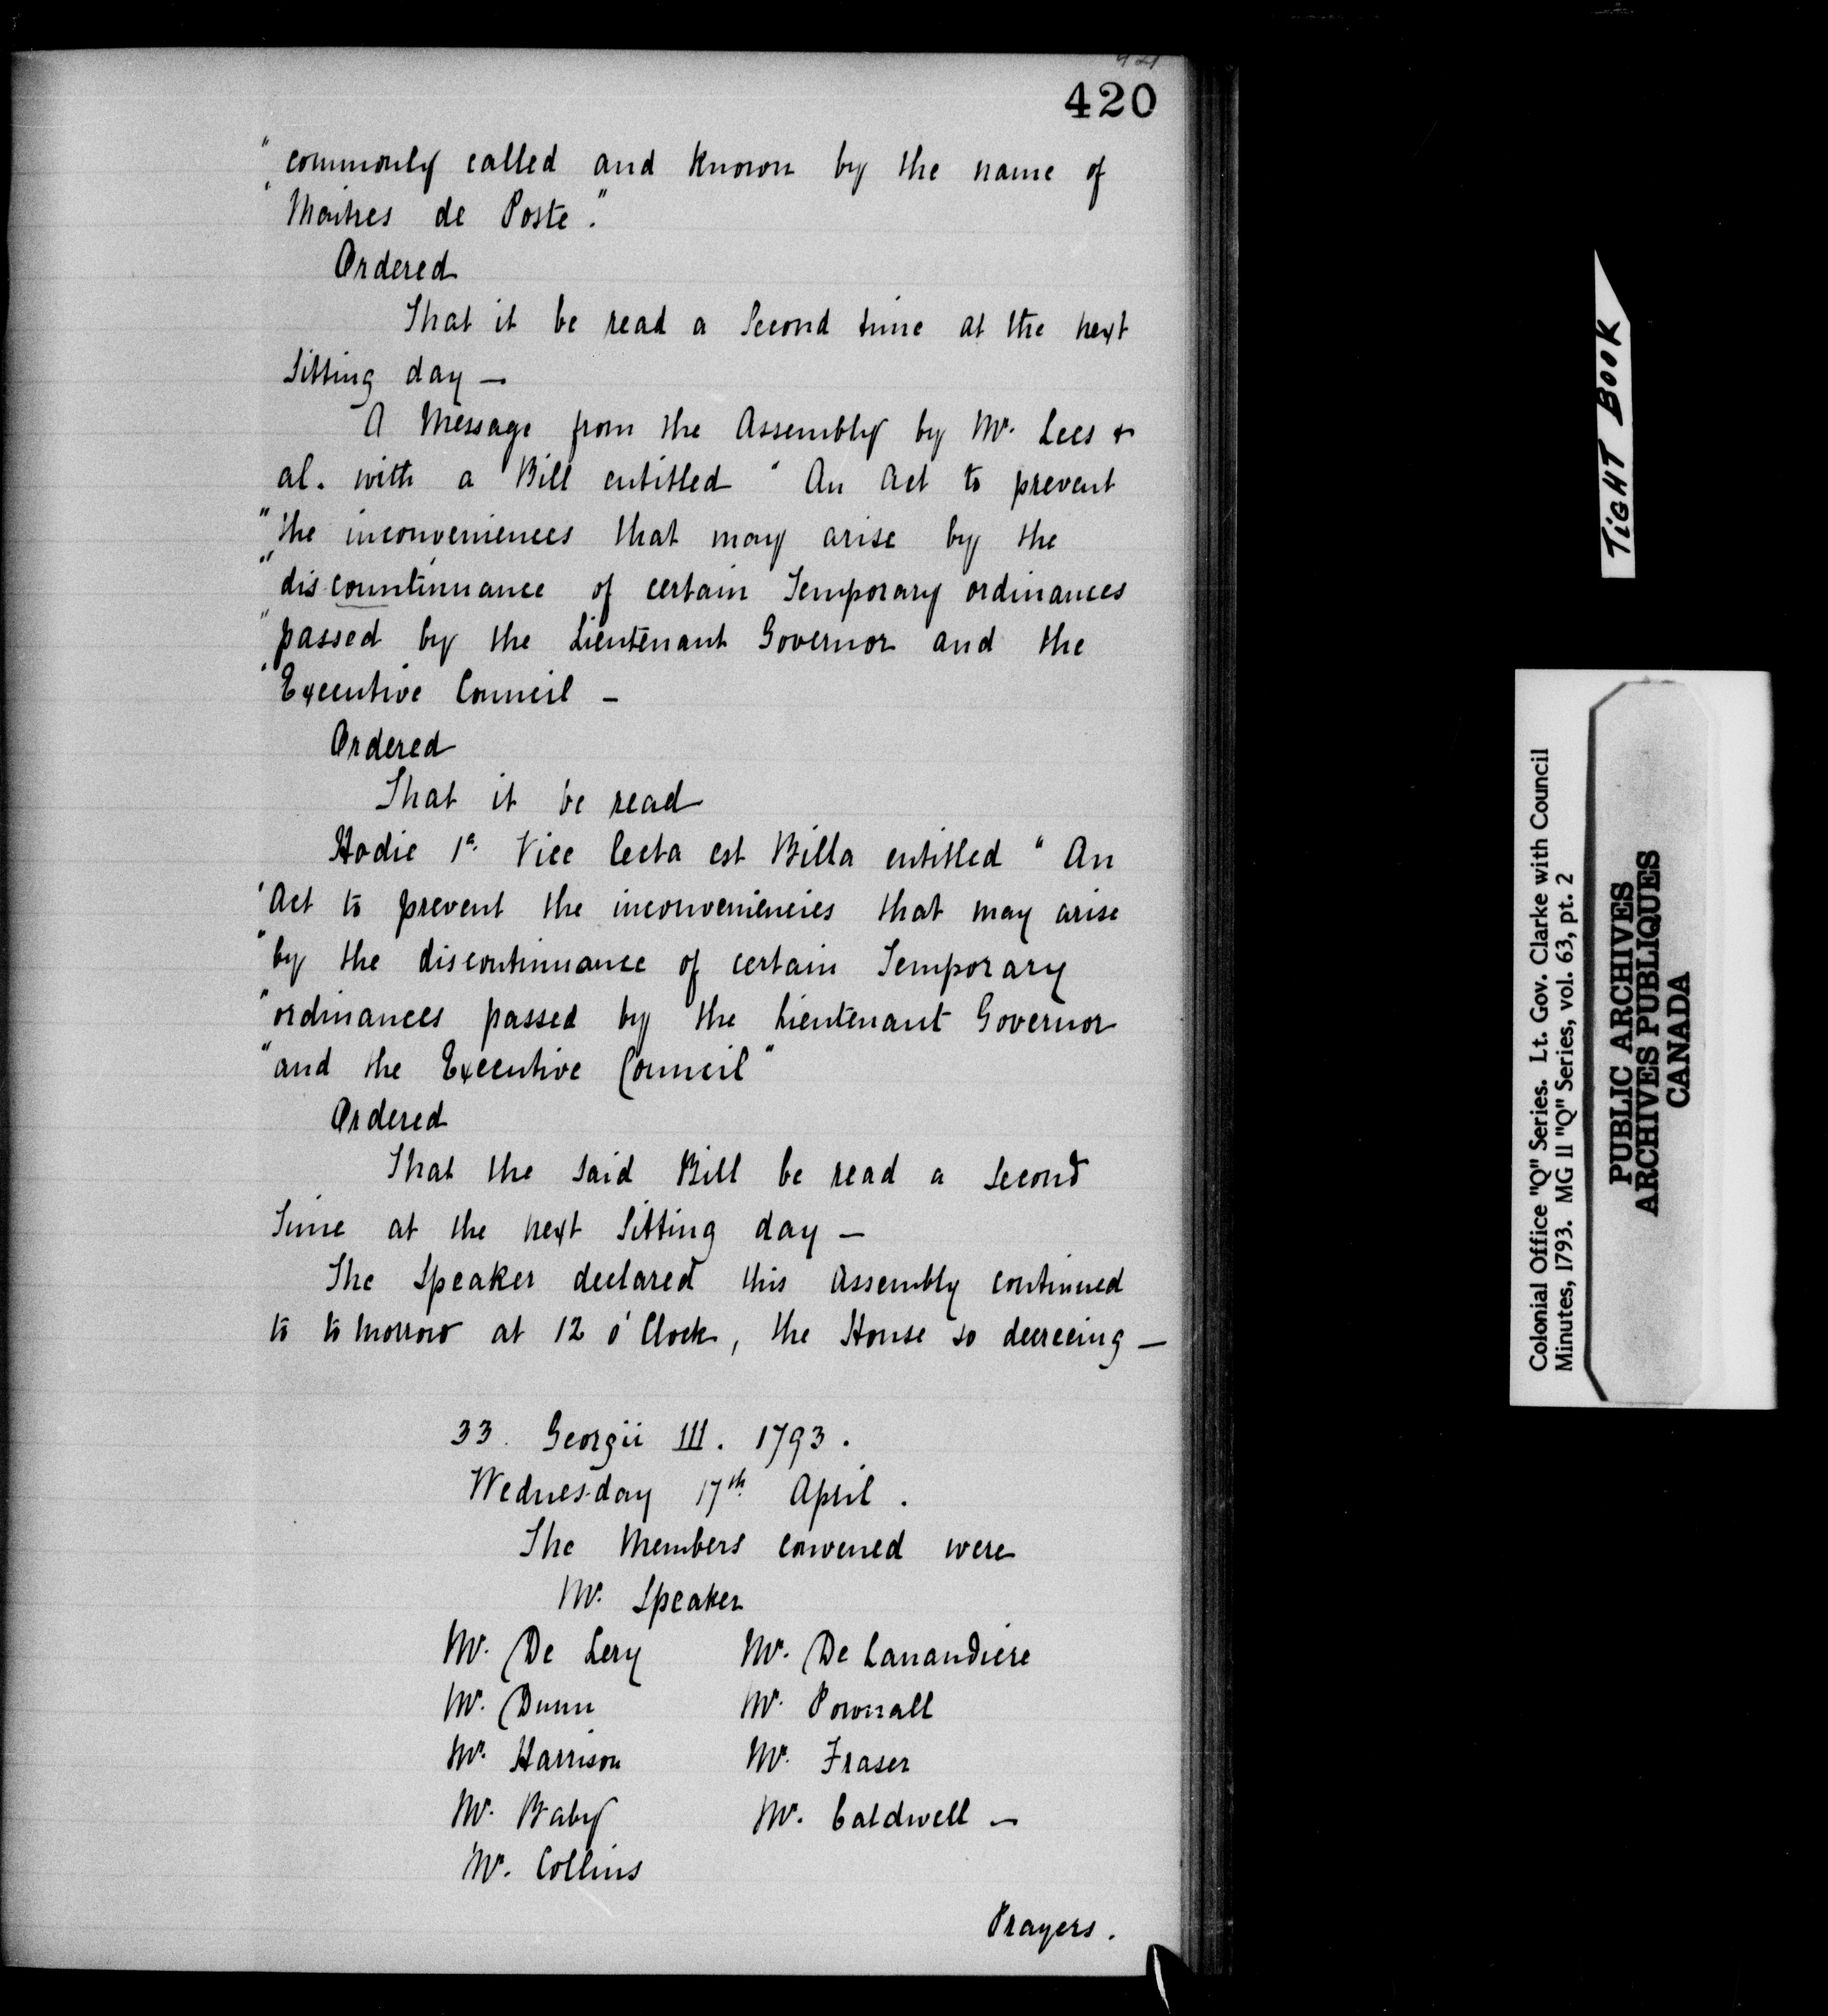 420
"commonly called and known by the name of
"Maitres de Poste."
Ordered
That it be read a Second time at the next
Sitting day —
A Message from the Assembly by Mr. Lees &
al. with a Bill entitled "An Act to prevent
"the inconveniences that may arise by the
"discountinuance of certain Temporary ordinances
"passed by the Lieutenant Governor and the
"Executive Council —
Ordered
That it be read
Hodie 1a. Vice lecta est Billa entitled "An
"Act to prevent the inconveniencies that may arise
"by the discontinuance of certain Temporary
"ordinances passed by the Lieutenant Governor
"and the Executive Council"
Ordered
That the said Bill be read a Second
Time at the next Sitting day —
The Speaker declared this Assembly continued
to to morrow at 12 o'Clock, the House so decreeing —
33. Georgii III. 1793.
Wednesday 17th April.
The Members convened were
Mr. Speaker
Mr. De Lery Mr. De Lanaudiere
Mr. Dunn Mr. Pownall
Mr. Harrison Mr. Fraser
Mr. Baby Mr. Caldwell —
Mr. Collins
Prayers.
TIGHT BOOK
Colonial Office "Q" Series. Lt. Gov. Clarke with Council
Minutes, 1793. MG 11 "Q" Series, vol. 63, pt. 2
PUBLIC ARCHIVES
ARCHIVES PUBLIQUES
CANADA